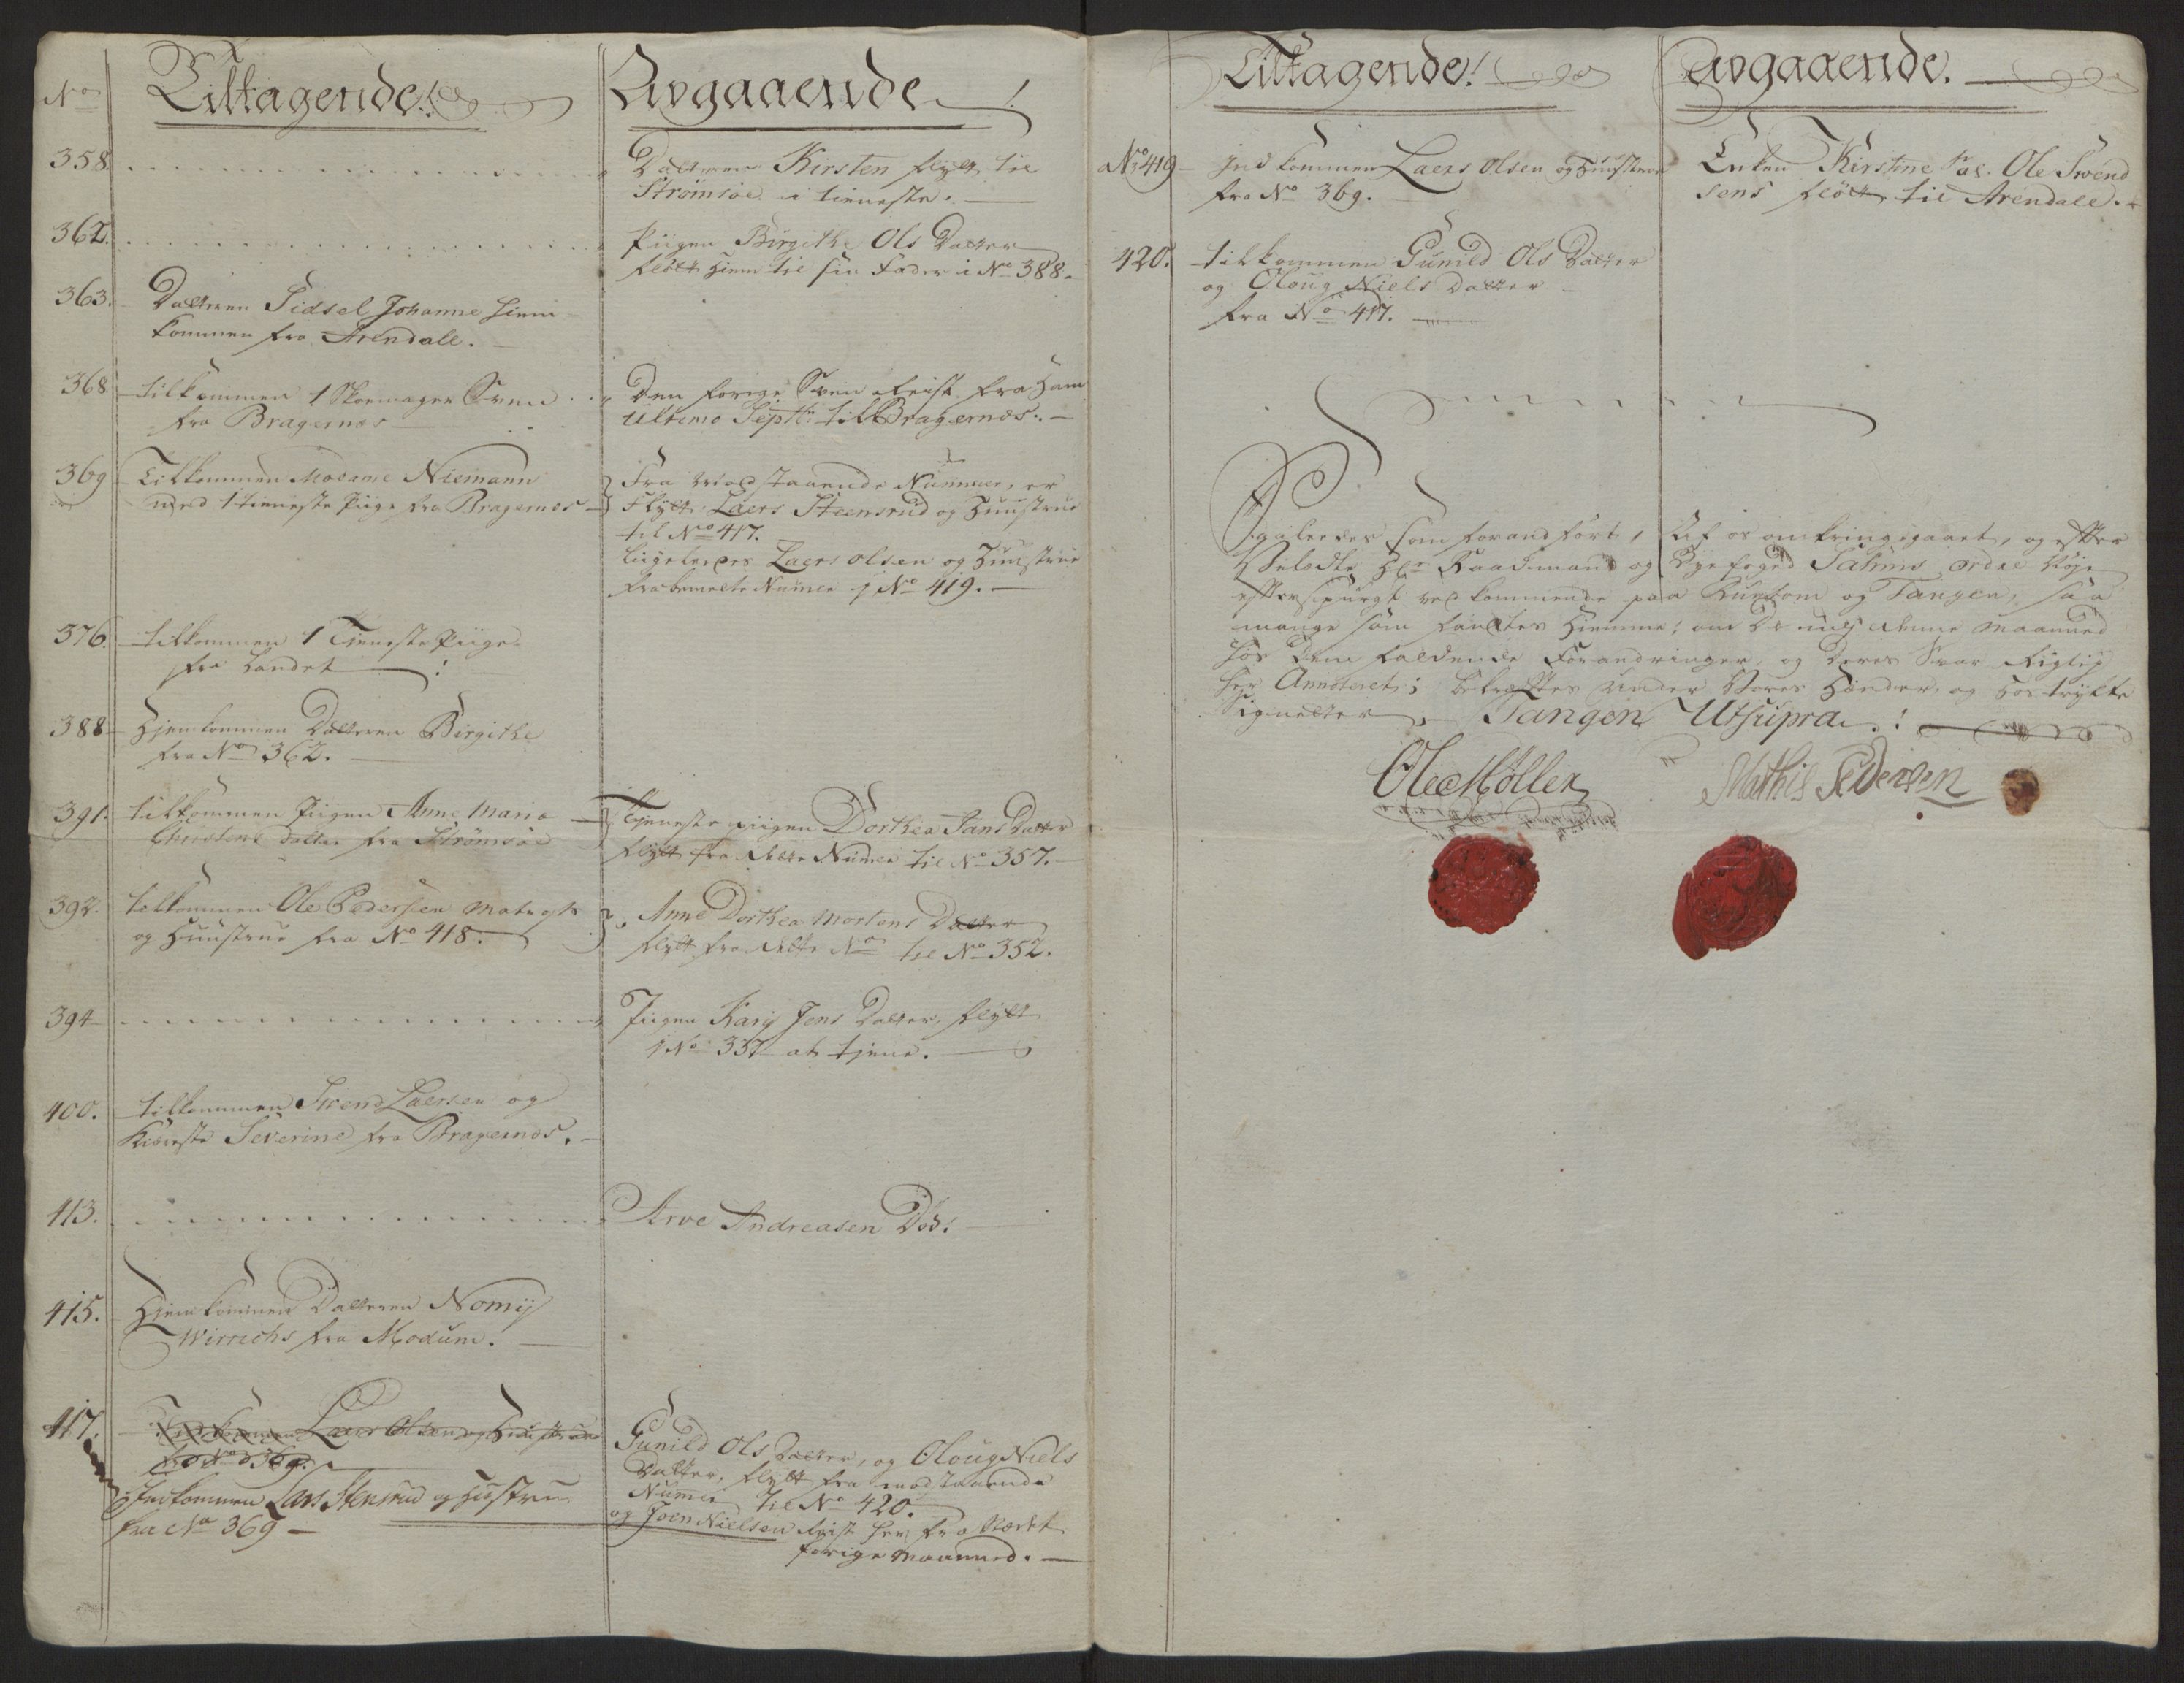 No
Tiltagende!
Avgaaende
358.
Datteren Kirsten flytt til
Strømsøe i tieneste.
362.
Piigen Birgithe Ols Datter
fløtt hiem til sin Fader i No 388.
363.
Datteren Sidsel Johanne hiem
kommen fra Arendall.
368
tilkommen 1 Skoemager Svend
fra Bragernæs
Den forige Svend Reist fra Ham
Ultimo Septbr: til Bragernæs.
369
Tilkommen Madame Niemann
med 1 tieneste Piige fra Bragernæs
Fra Modstaaende Nummer, er
Flytt Laers Steensrud og Huustrue
til No 417.
liigeledes Laers Olsen og Huustrue
fra bemelte Numer i No 419.
376.
tilkommen 1 Tieneste Piige
fra Landet
388
Hjemkommen Datteren Birgithe
fra No 362.
391.
tilkommen Piigen Anne Maria
Christens datter fra Strømsøe
Tjeneste piigen Dorthea Jans Datter
flytt fra dette Numer til No 357.
392.
tilkommen Ole Pedersen Matros
og Huustrue fra No 418.
Anne Dorthea Mortens Datter
flytt fra dette No til No 352.
394
Piigen Karij Jens Datter, flytt
i No 337 at tjene.
400.
tilkommen Svend Laersen og
Kiæreste Severine fra Bragernæs.
413.
Arve Andreasen Død.
415.
Hjemkommen Datteren Nomij
Wirrichs fra Modum.
417.
Indkommen Laers Olsen og Huustrue
fra No 369.
Indkommen Lars Stensrud og Hustru
fra No 369
Gunild Ols Datter, og Oloug Niels
Datter, flytt fra modstaaende
Numer til No 420.
og Joen Nielsen Reist her fra Stædet
forige Maanned.
Tiltagende!
Avgaaende.
No 419
Indkommen Laers Olsen og Huustrue
fra No 369.
Enken Kirstine Sal. Ole Svend
sens fløtt til Arendall.
420.
tilkommen Gunild Ols Datter
og Oloug Niels Datter
fra No 417.
Saaledes som foranført, Af os omkringgaaet, og efter
Velædle Hr Raadmand og Byefoged Sahms ordre Nøje
efterspurgt vedkommende paa Kulstom og Tangen, saa
mange som fantes Hiemme; om De udj denne Maanned
hos Dem faldende Forandringer, og Deres Svar Rigtig
her Annoteret; bekræftes under Vores Hænder, og hostrykte
Signetter. Tangen Utsupra.
Ole Møller
Mathis Pedersen